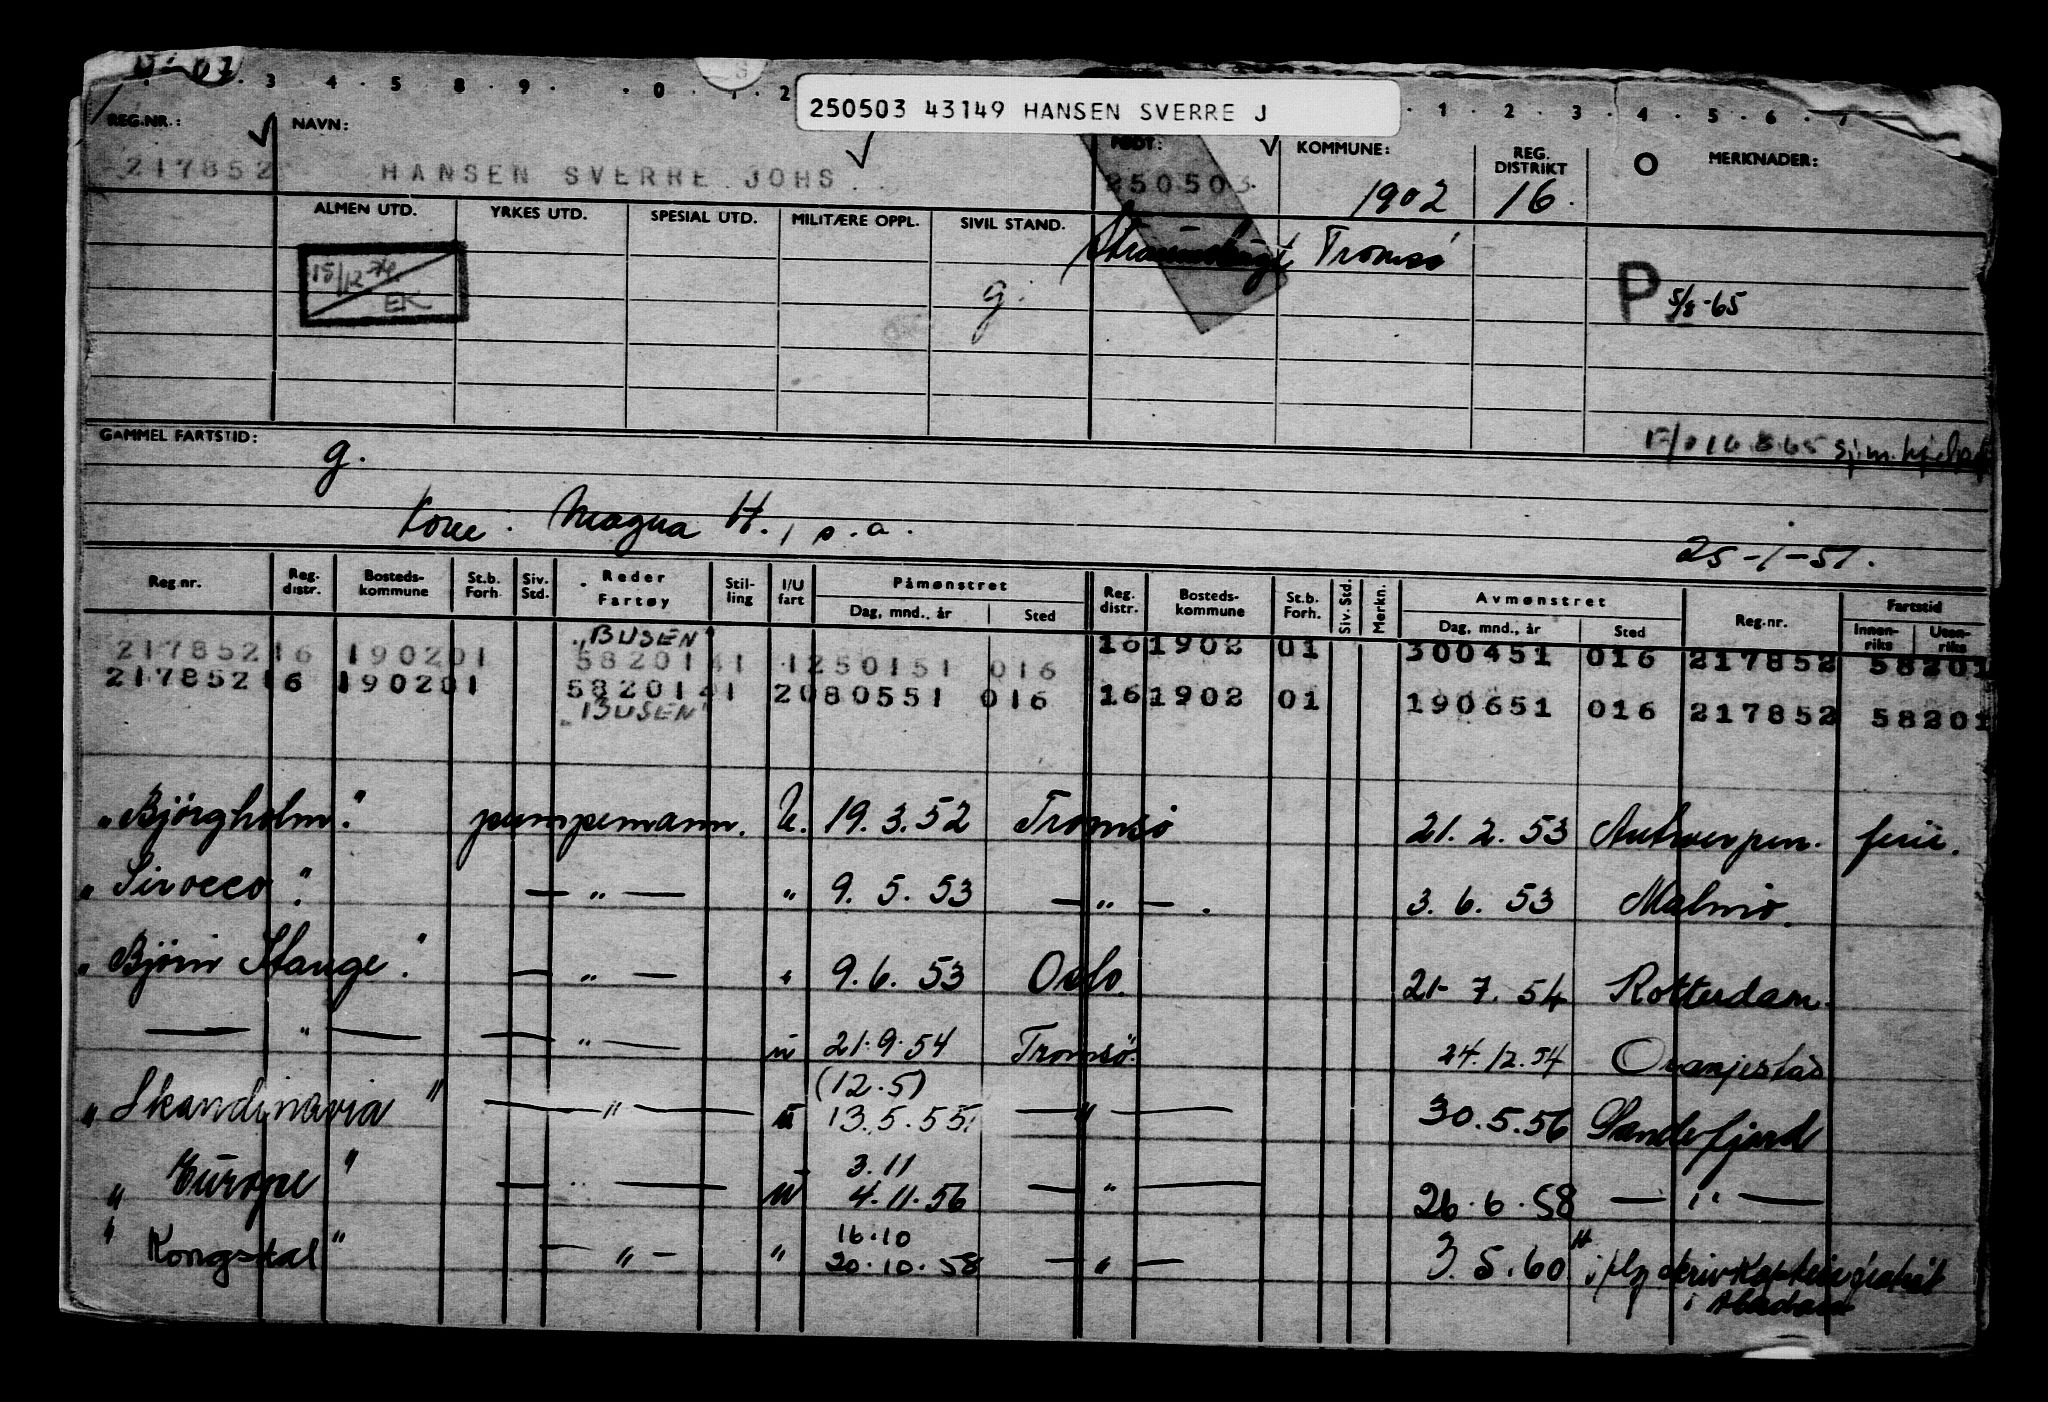 250503 43149 HANSEN SVERRE J
3 4 5 8 9 0 2 1 2 3 4 5 6 7
REG.NR.: NAVN: FØDT: KOMMUNE: REG. DISTRIKT O MERKNADER:
217852 HANSEN SVERRE JOHS. 250503. 1902 16.
ALMEN UTD. YRKES UTD. SPESIAL UTD. MILITÆRE OPPL. SIVIL STAND.
Tromsø
15/12 74
EK
g.
P 5/8-65
GAMMEL FARTSTID:
g.
16.8.65
Kone: Magna H., s.a.
25-1-51.
Reg.nr. Reg. distr. Bosteds-kommune St.b. Forh. Siv. Std. Reder Fartøy Stil-ling I/U fart Påmønstret Reg. distr. Bosteds-kommune St.b. Forh. Siv. Std. Merkn. Avmønstret Reg.nr. Fartstid
Dag, mnd., år Sted Dag, mnd., år Sted Innen-riks Uten-riks
"BUSEN"
217852 16 1902 01 58201 41 1 250151 016 16 1902 01 300451 016 217852 58201
217852 16 1902 01 58201 41 2 080551 016 16 1902 01 190651 016 217852 58201
"BUSEN"
"Bjørgholm". pumpemann. U. 19.3.52 Tromsø 21.2.53 Antwerpen. ferie.
"Sirocco". — " — " 9.5.53 — " — . 3.6.53 Malmø.
"Bjørn Stange". — " — " 9.6.53 Oslo. 21-7.54 Rotterdam.
— " — — " — u 21.9.54 Tromsø. 24.12.54 Oranjestad
(12.5)
"Skandinavia" — " — u 13.5.55. — " — 30.5.56 Sandefjord
3.11
"Europe" — " — u 4.11.56 — " — 26.6.58 — " —
16.10
"Kongsdal" — " — " 20.10.58 — " — 3.5.60
i Abadan